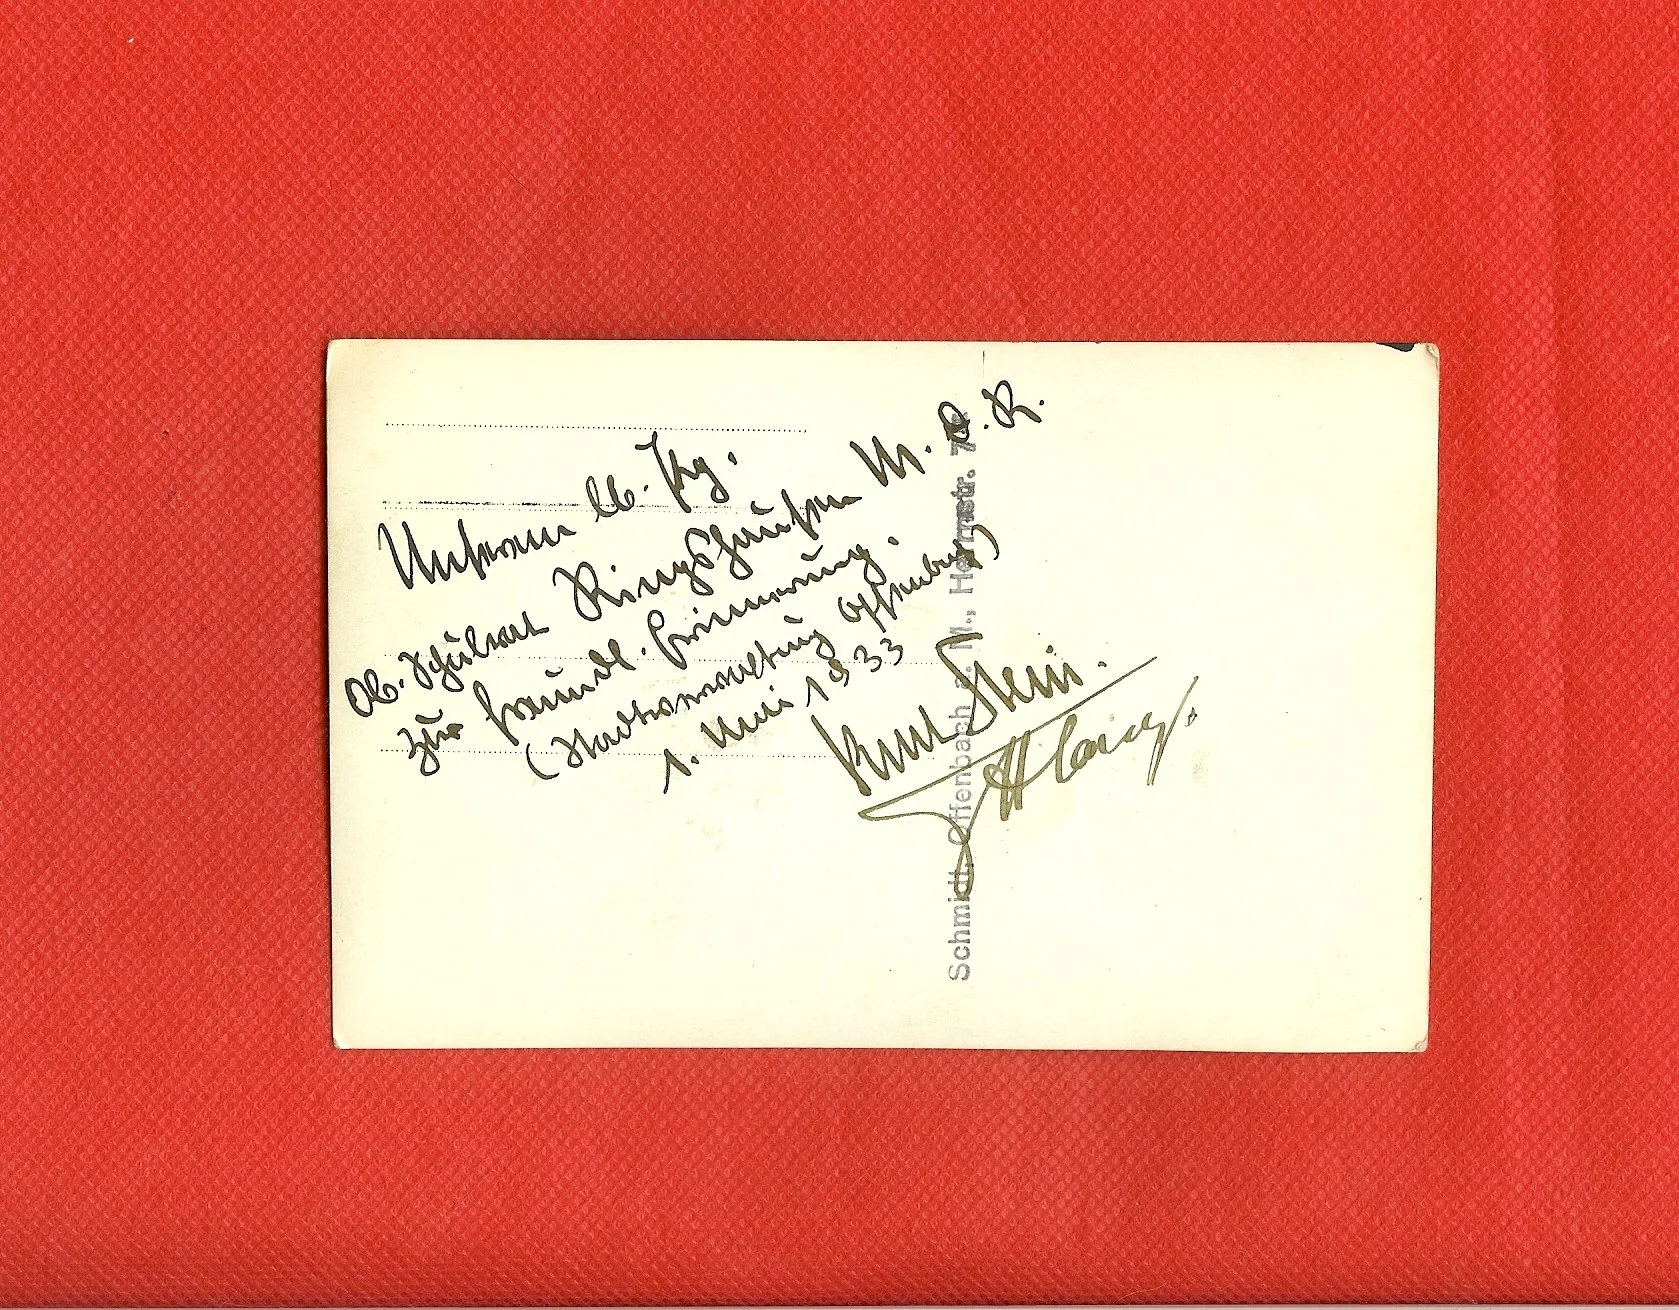 Unserem lb. Pg.
Ob. Schulrat Ringshausen M. d. R.
zur freundl. Erinnerung.
(Stadtverwaltung Offenbach)
1. Mai 1933
Kurt Stein.
Schmidt, Offenbach a. M., Herrnstr.